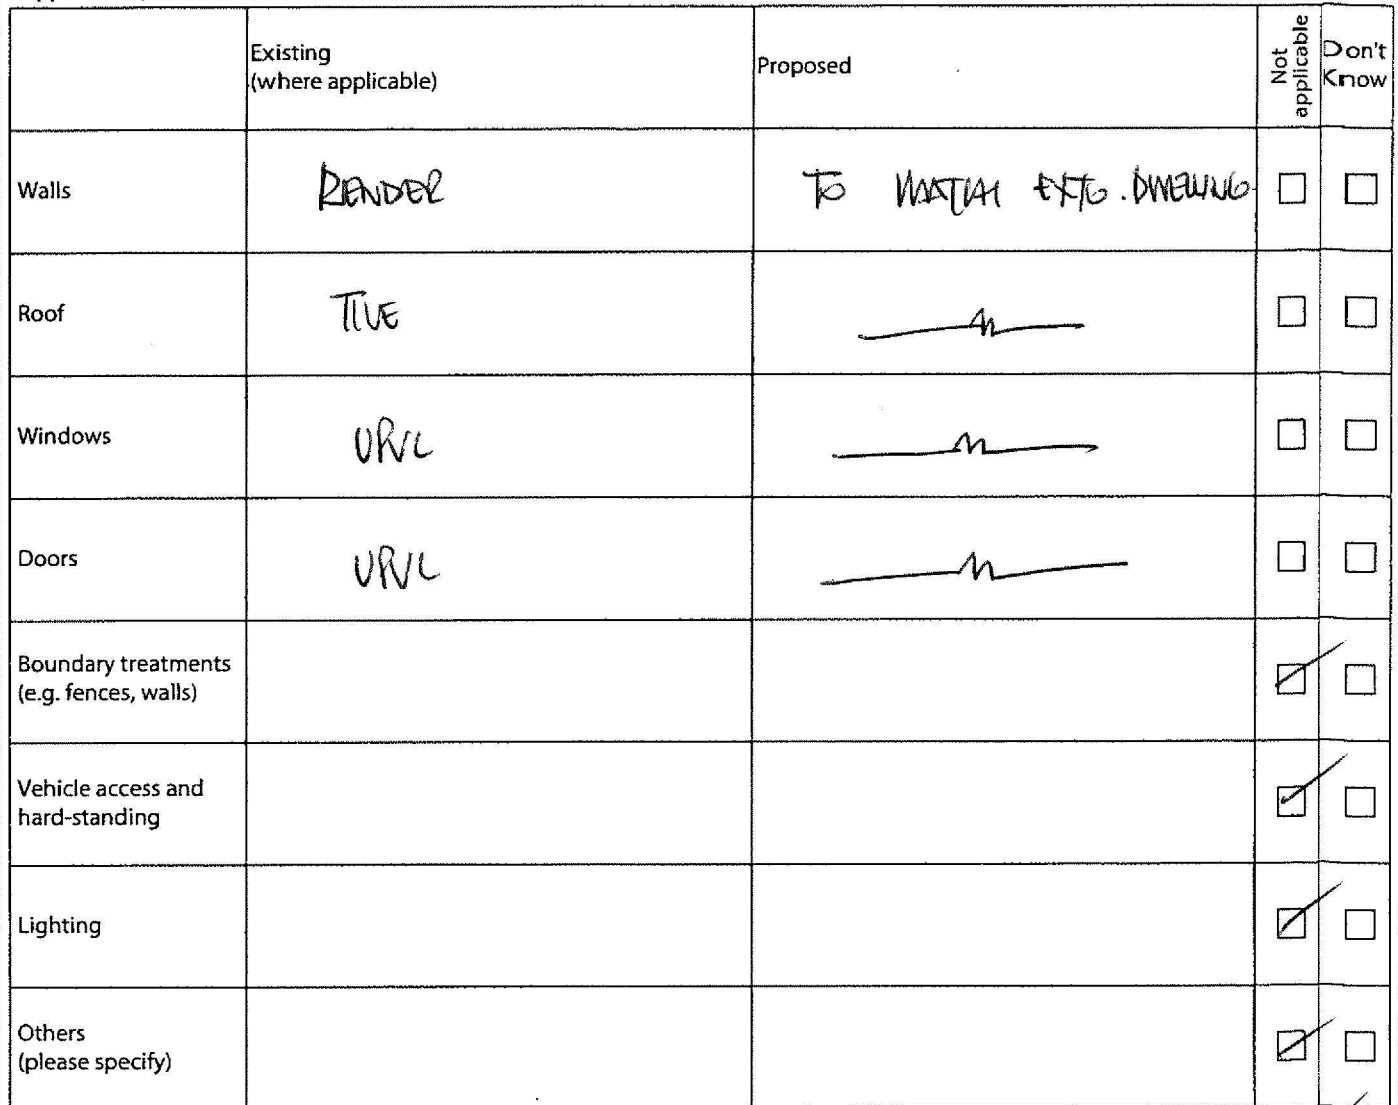 Existing
(where applicable)
Proposed
Not
applicable
Don't
Know
Walls
RENDER
TO MATCH EXTG. DWELLING
Roof
TILE
Windows
UPVC
Doors
UPVC
Boundary treatments
(e.g. fences, walls)
Vehicle access and
hard-standing
Lighting
Others
(please specify)